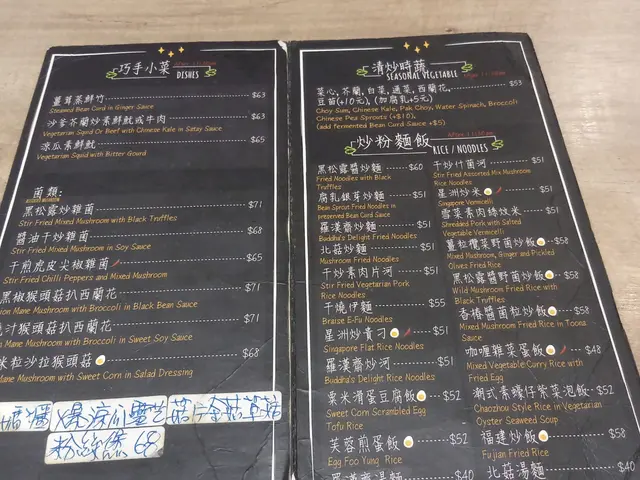 巧手小菜 After 11:30am
DISHES
薑茸蒸鮮竹 $63
Steamed Bean Curd in Ginger Sauce
沙爹芥蘭炒素鮮魷或牛肉 $63
Vegetarian Squid Or Beef with Chinese Kale in Satay Sauce
涼瓜素鮮魷 $65
Vegetarian Squid with Bitter Gourd
菌類:
黑松露炒雜菌 $71
Stir Fried Mixed Mushroom with Black Truffles
醬油干炒雜菌 $68
Stir Fried Mixed Mushroom in Soy Sauce
干煎虎皮尖椒雜菌 $65
Stir Fried Chilli Peppers and Mixed Mushroom
黑椒猴頭菇扒西蘭花 $71
Mane Mushroom with Broccoli in Black Bean Sauce
汁猴頭菇扒西蘭花 $71
Mane Mushroom with Broccoli in Sweet Soy Sauce
米粒沙拉猴頭菇 $68
Mane Mushroom with Sweet Corn in Salad Dressing
68
清炒時蔬 After 11:30am
SEASONAL VEGETABLE
菜心, 芥蘭, 白菜, 通菜, 西蘭花, $53
豆苗(+10元), (加腐乳+5元)
Choy Sum, Chinese Kale, Pak Choy, Water Spinach, Broccoli
Chinese Pea Sprouts (+$10),
(add fermented Bean Curd Sauce +$5)
炒粉麵飯 After 11:30am
RICE / NOODLES
黑松露醬炒麵 $60
Fried Noodles with Black
Truffles
腐乳銀芽炒麵 $51
Bean Sprout Fried Noodles in
preserved Bean Curd Sauce
羅漢齋炒麵 $51
Buddha's Delight Fried Noodles
北菇炒麵 $51
Mushroom Fried Noodles
干炒素肉片河 $51
Stir Fried Vegetarian Pork
Rice Noodles
干燒伊麵 $55
Braise E-Fu Noodles
星洲炒貴刁 $51
Singapore Flat Rice Noodles
羅漢齋炒河 $51
Buddha's Delight Rice Noodles
粟米滑蛋豆腐飯 $52
Sweet Corn Scrambled Egg
Tofu Rice
芙蓉煎蛋飯 $52
Egg Foo Yung Rice
羅漢齋湯麵 $40
干炒什菌河 $51
Stir Fried Assorted Mix Mushroom
Rice Noodles
星洲炒米 $51
Singapore Vermicelli
雪菜素肉絲炆米 $51
Shredded Pork with Salted
Vegetable Vermicelli
薑松欖菜野菌炒飯 $58
Mixed Mushroom, Ginger and Pickled
Olives Fried Rice
黑松露醬野菌炒飯 $58
Wild Mushroom Fried Rice with
Black Truffles
香椿醬菌粒炒飯 $58
Mixed Mushroom Fried Rice in Toona
Sauce
咖喱雜菜蛋飯 $48
Mixed Vegetable Curry Rice with
Fried Egg
潮式素蠔仔紫菜泡飯 $52
Chaozhou Style Rice in Vegetarian
Oyster Seaweed Soup
福建炒飯 $58
Fujian Fried Rice
北菇湯麵 $40